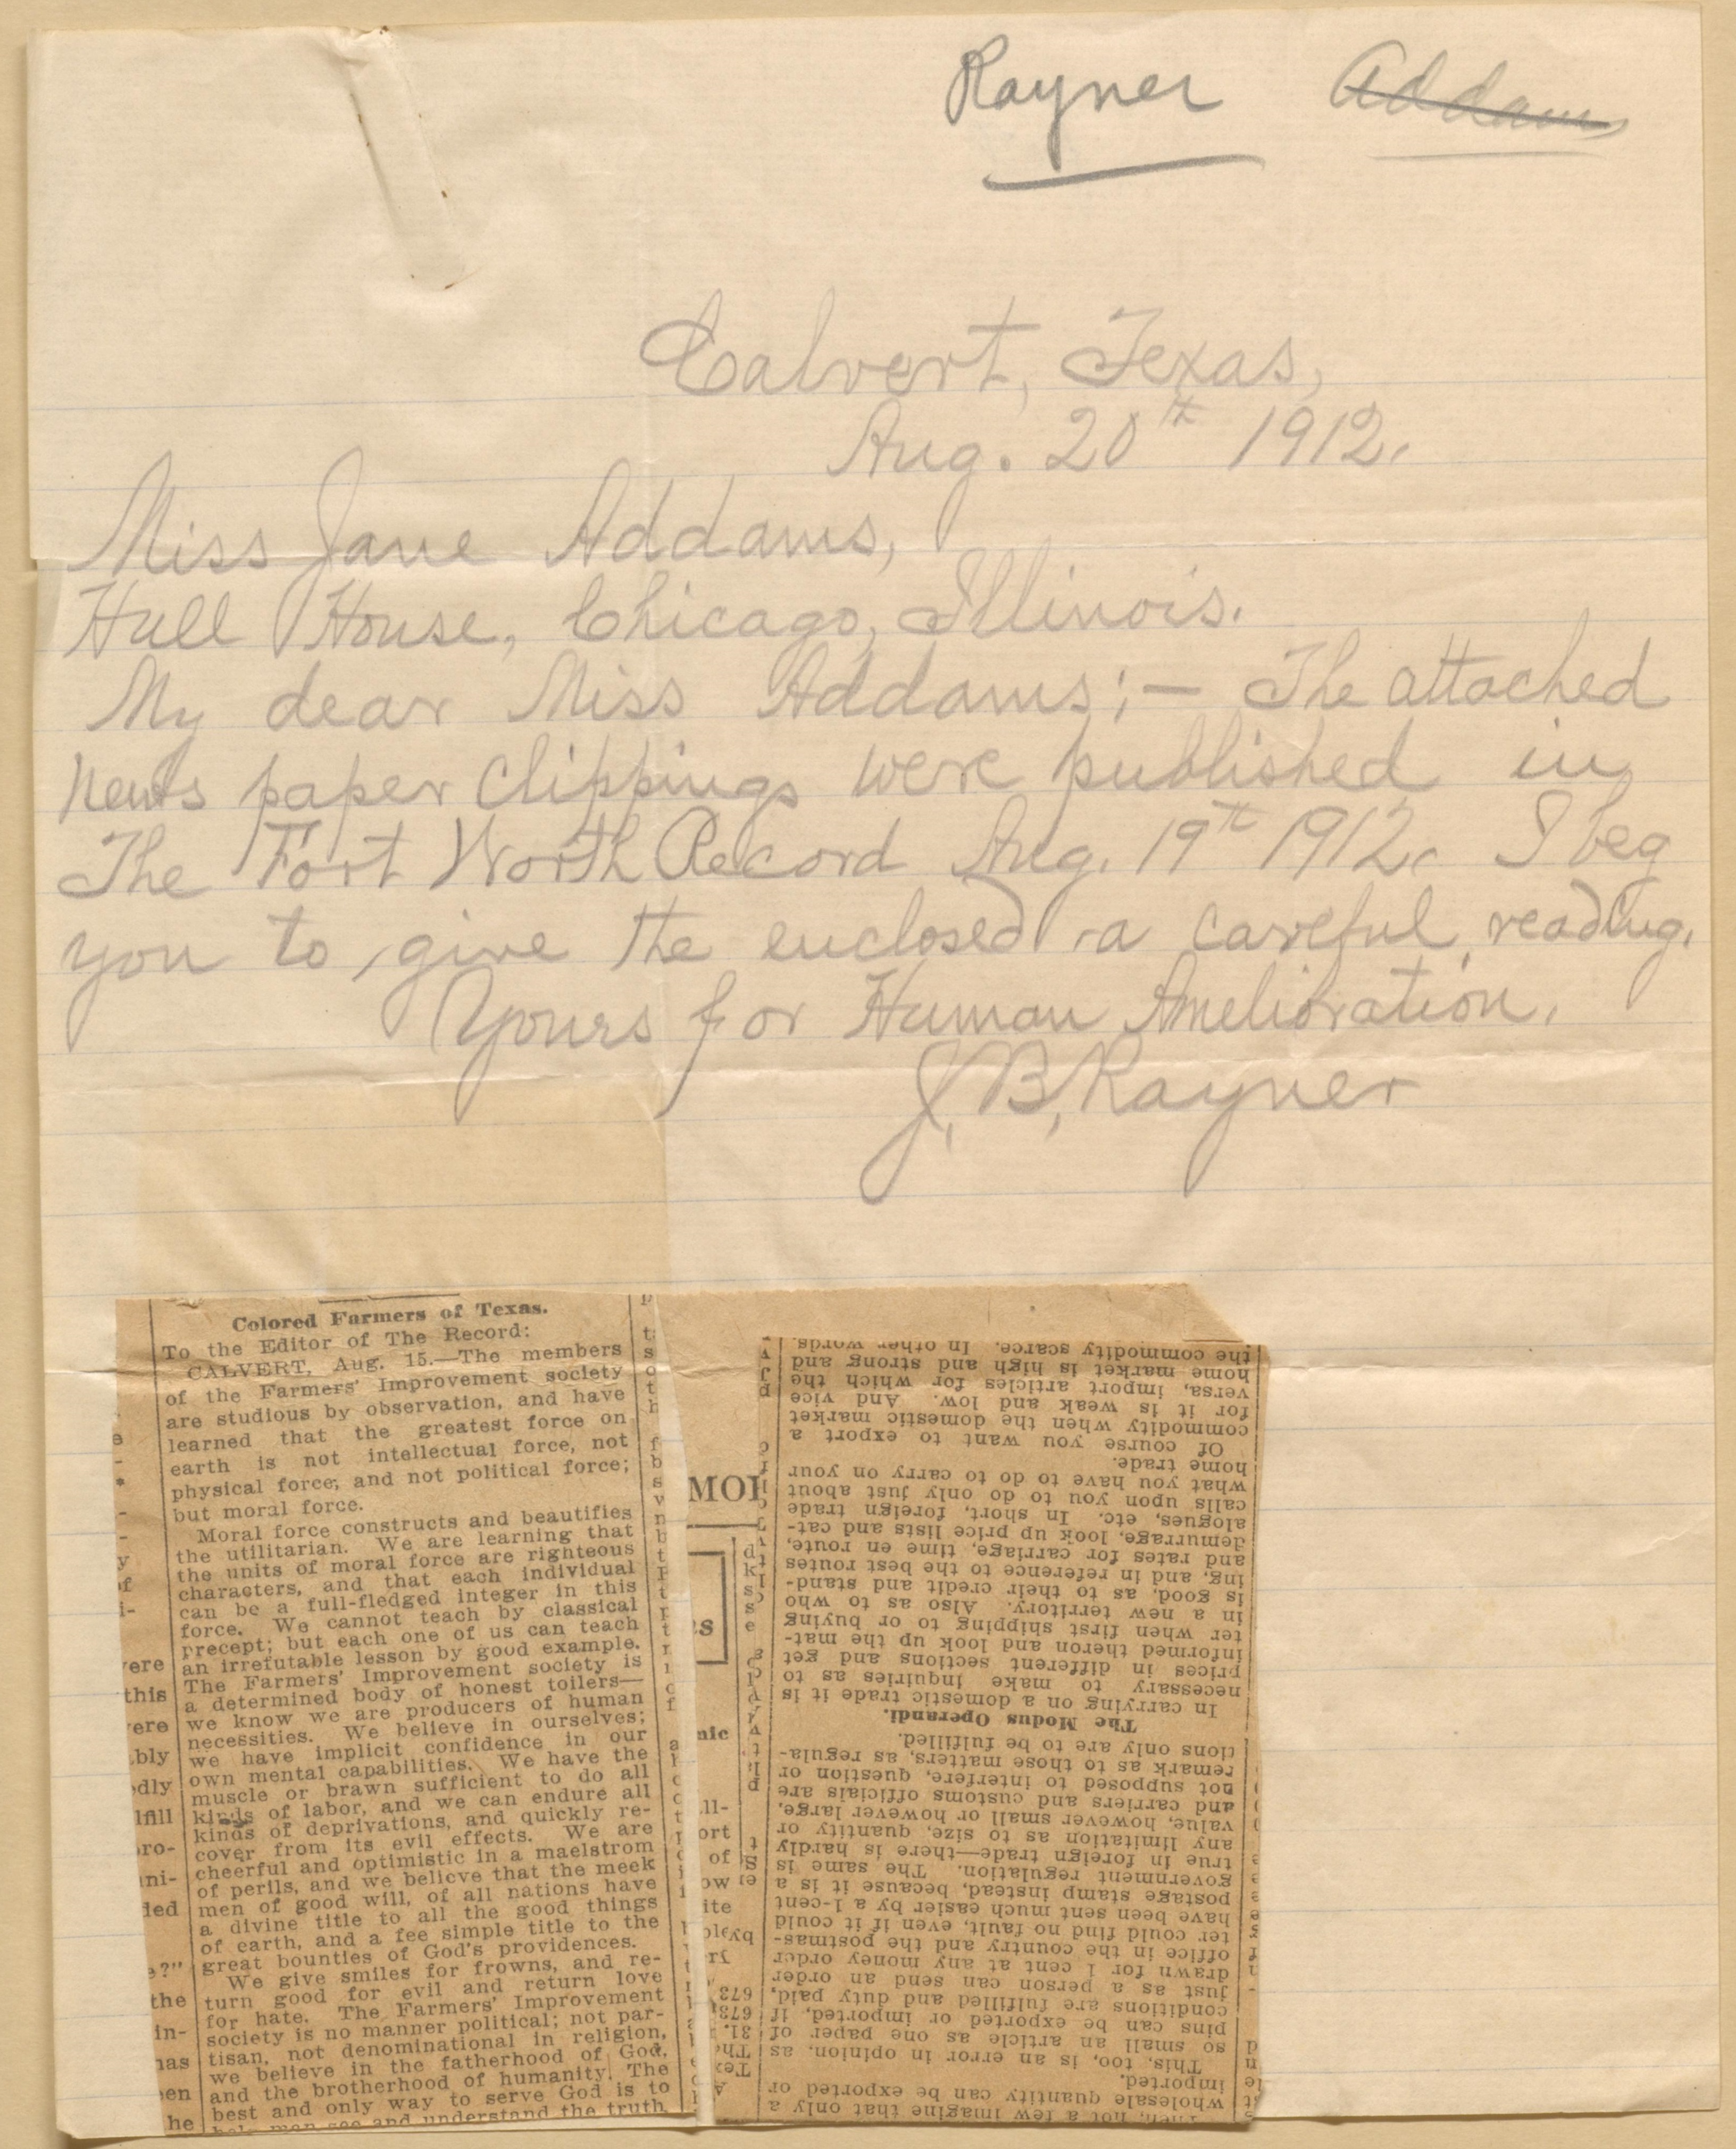 Rayner Addams
Calvert, Texas,
Aug. 20th 1912.
Miss Jane Addams,
Hull House, Chicago, Illinois.
My dear Miss Addams;— The attached
news paper clippings were published in
The Fort Worth Record Aug. 19th 1912. I beg
you to give the enclosed a careful reading.
Yours for Human Amelioration.
J. B. Rayner
Colored Farmers of Texas.
To the Editor of The Record:
CALVERT, Aug. 15.—The members
of the Farmers' Improvement society
are studious by observation, and have
learned that the greatest force on
earth is not intellectual force, not
physical force; and not political force;
but moral force.
Moral force constructs and beautifies
the utilitarian. We are learning that
the units of moral force are righteous
characters, and that each individual
can be a full-fledged integer in this
force. We cannot teach by classical
precept; but each one of us can teach
an irrefutable lesson by good example.
The Farmers' Improvement society is
a determined body of honest toilers—
we know we are producers of human
necessities. We believe in ourselves;
we have implicit confidence in our
own mental capabilities. We have the
muscle or brawn sufficient to do all
kinds of labor, and we can endure all
kinds of deprivations, and quickly re-
cover from its evil effects. We are
cheerful and optimistic in a maelstrom
of perils, and we believe that the meek
men of good will, of all nations have
a divine title to all the good things
of earth, and a fee simple title to the
great bounties of God's providences.
We give smiles for frowns, and re-
turn good for evil and return love
for hate. The Farmers' Improvement
society is no manner political; not par-
tisan, not denominational in religion,
we believe in the fatherhood of God,
and the brotherhood of humanity. The
best and only way to serve God is to
help man see and understand the truth
ere
this
ere
bly
edly
lfill
pro-
ded
e?"
the
in-
has
en
he
MOI
es
nic
ll-
ort
of
ow
ite
673
673
31.
Th
Tex
Then, not a few imagine that only a
wholesale quantity can be exported or
imported.
This, too, is an error in opinion, as
so small an article as one paper of
pins can be exported or imported, if
conditions are fulfilled and duty paid,
just as a person can send an order
drawn for 1 cent at any money order
office in the country and the postmas-
ter could find no fault, even if it could
have been sent much easier by a 1-cent
postage stamp instead, because it is a
government regulation. The same is
true in foreign trade—there is hardly
any limitation as to size, quantity or
value, however small or however large,
and carriers and customs officials are
not supposed to interfere, question or
remark as to those matters, as regula-
tions only are to be fulfilled.
The Modus Operandi.
In carrying on a domestic trade it is
necessary to make inquiries as to
prices in different sections and get
informed thereon and look up the mat-
ter when first shipping to or buying
in a new territory. Also as to who
is good, as to their credit and stand-
ing, and in reference to the best routes
and rates for carriage, time en route,
demurrage, look up price lists and cat-
alogues, etc. In short, foreign trade
calls upon you to do only just about
what you have to do to carry on your
home trade.
Of course you want to export a
commodity when the domestic market
for it is weak and low. And vice
versa, import articles for which the
home market is high and strong and
the commodity scarce. In other words,